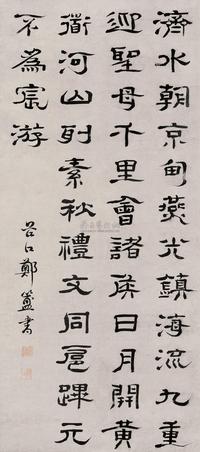 濟水朝京甸燕鎮海流九重
迎聖母千里會諸侯日月開黃
衜河山列素秋禮文同扈蹕元
不為宦游
谷口鄭簠書